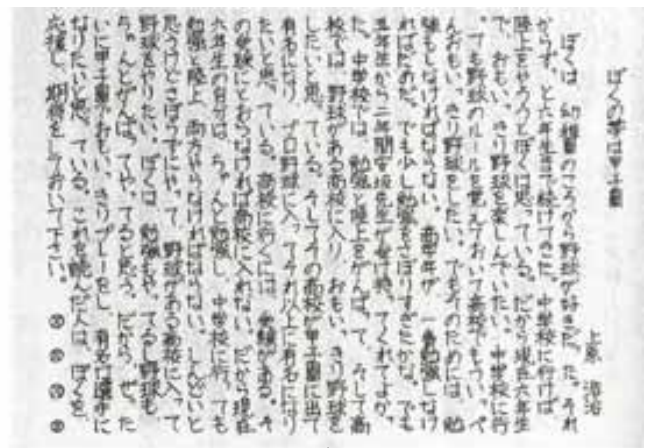 ぼくの夢は甲子園
上原 浩治
ぼくは、幼稚園のころから野球が好きだった。それ
からず、と六年生まで続けてきた。中学校に行けば
陸上をやろうとぼくは思っている。だから現在六年生
で、おもいっきり野球を楽しんでいたい。中学校に行
っても野球のルールを覚えておいて高校でもういっぺ
んおもいっきり野球をしたい。でもそのためには、勉
強もしなければならない。高学年が一番勉強しなけ
ればだめだ。でも少し勉強をさぼりすぎたかな。でも
五年生から二年間 先生が受け持ってくれてよか
た。中学校では、勉強と陸上をがんばって、そして高
校では、野球がある高校に入り おもいっきり野球を
したいと思っている。そしてその高校が甲子園に出て
有名になり プロ野球に入ってそれ以上に有名になり
たいと思っている。高校に行くには、受験がある。そ
の受験にとおらなければ高校に入れない。だから現在
六年生の自分は、ちゃんと勉強し、中学校に行っても
勉強と陸上 両方やらなければならない。しんどいと
思うけどさぼらずにやって 野球がある高校に入って
野球をやりたい。ぼくは、勉強もやってるし野球も、
ちゃんとがんばってやってると思う。だから、ぜった
いに甲子園でおもいっきりプレーをし、有名な選手に
なりたいと思っている。これを読んだ人は、ぼくを、
応援し、期待をしておいて下さい。